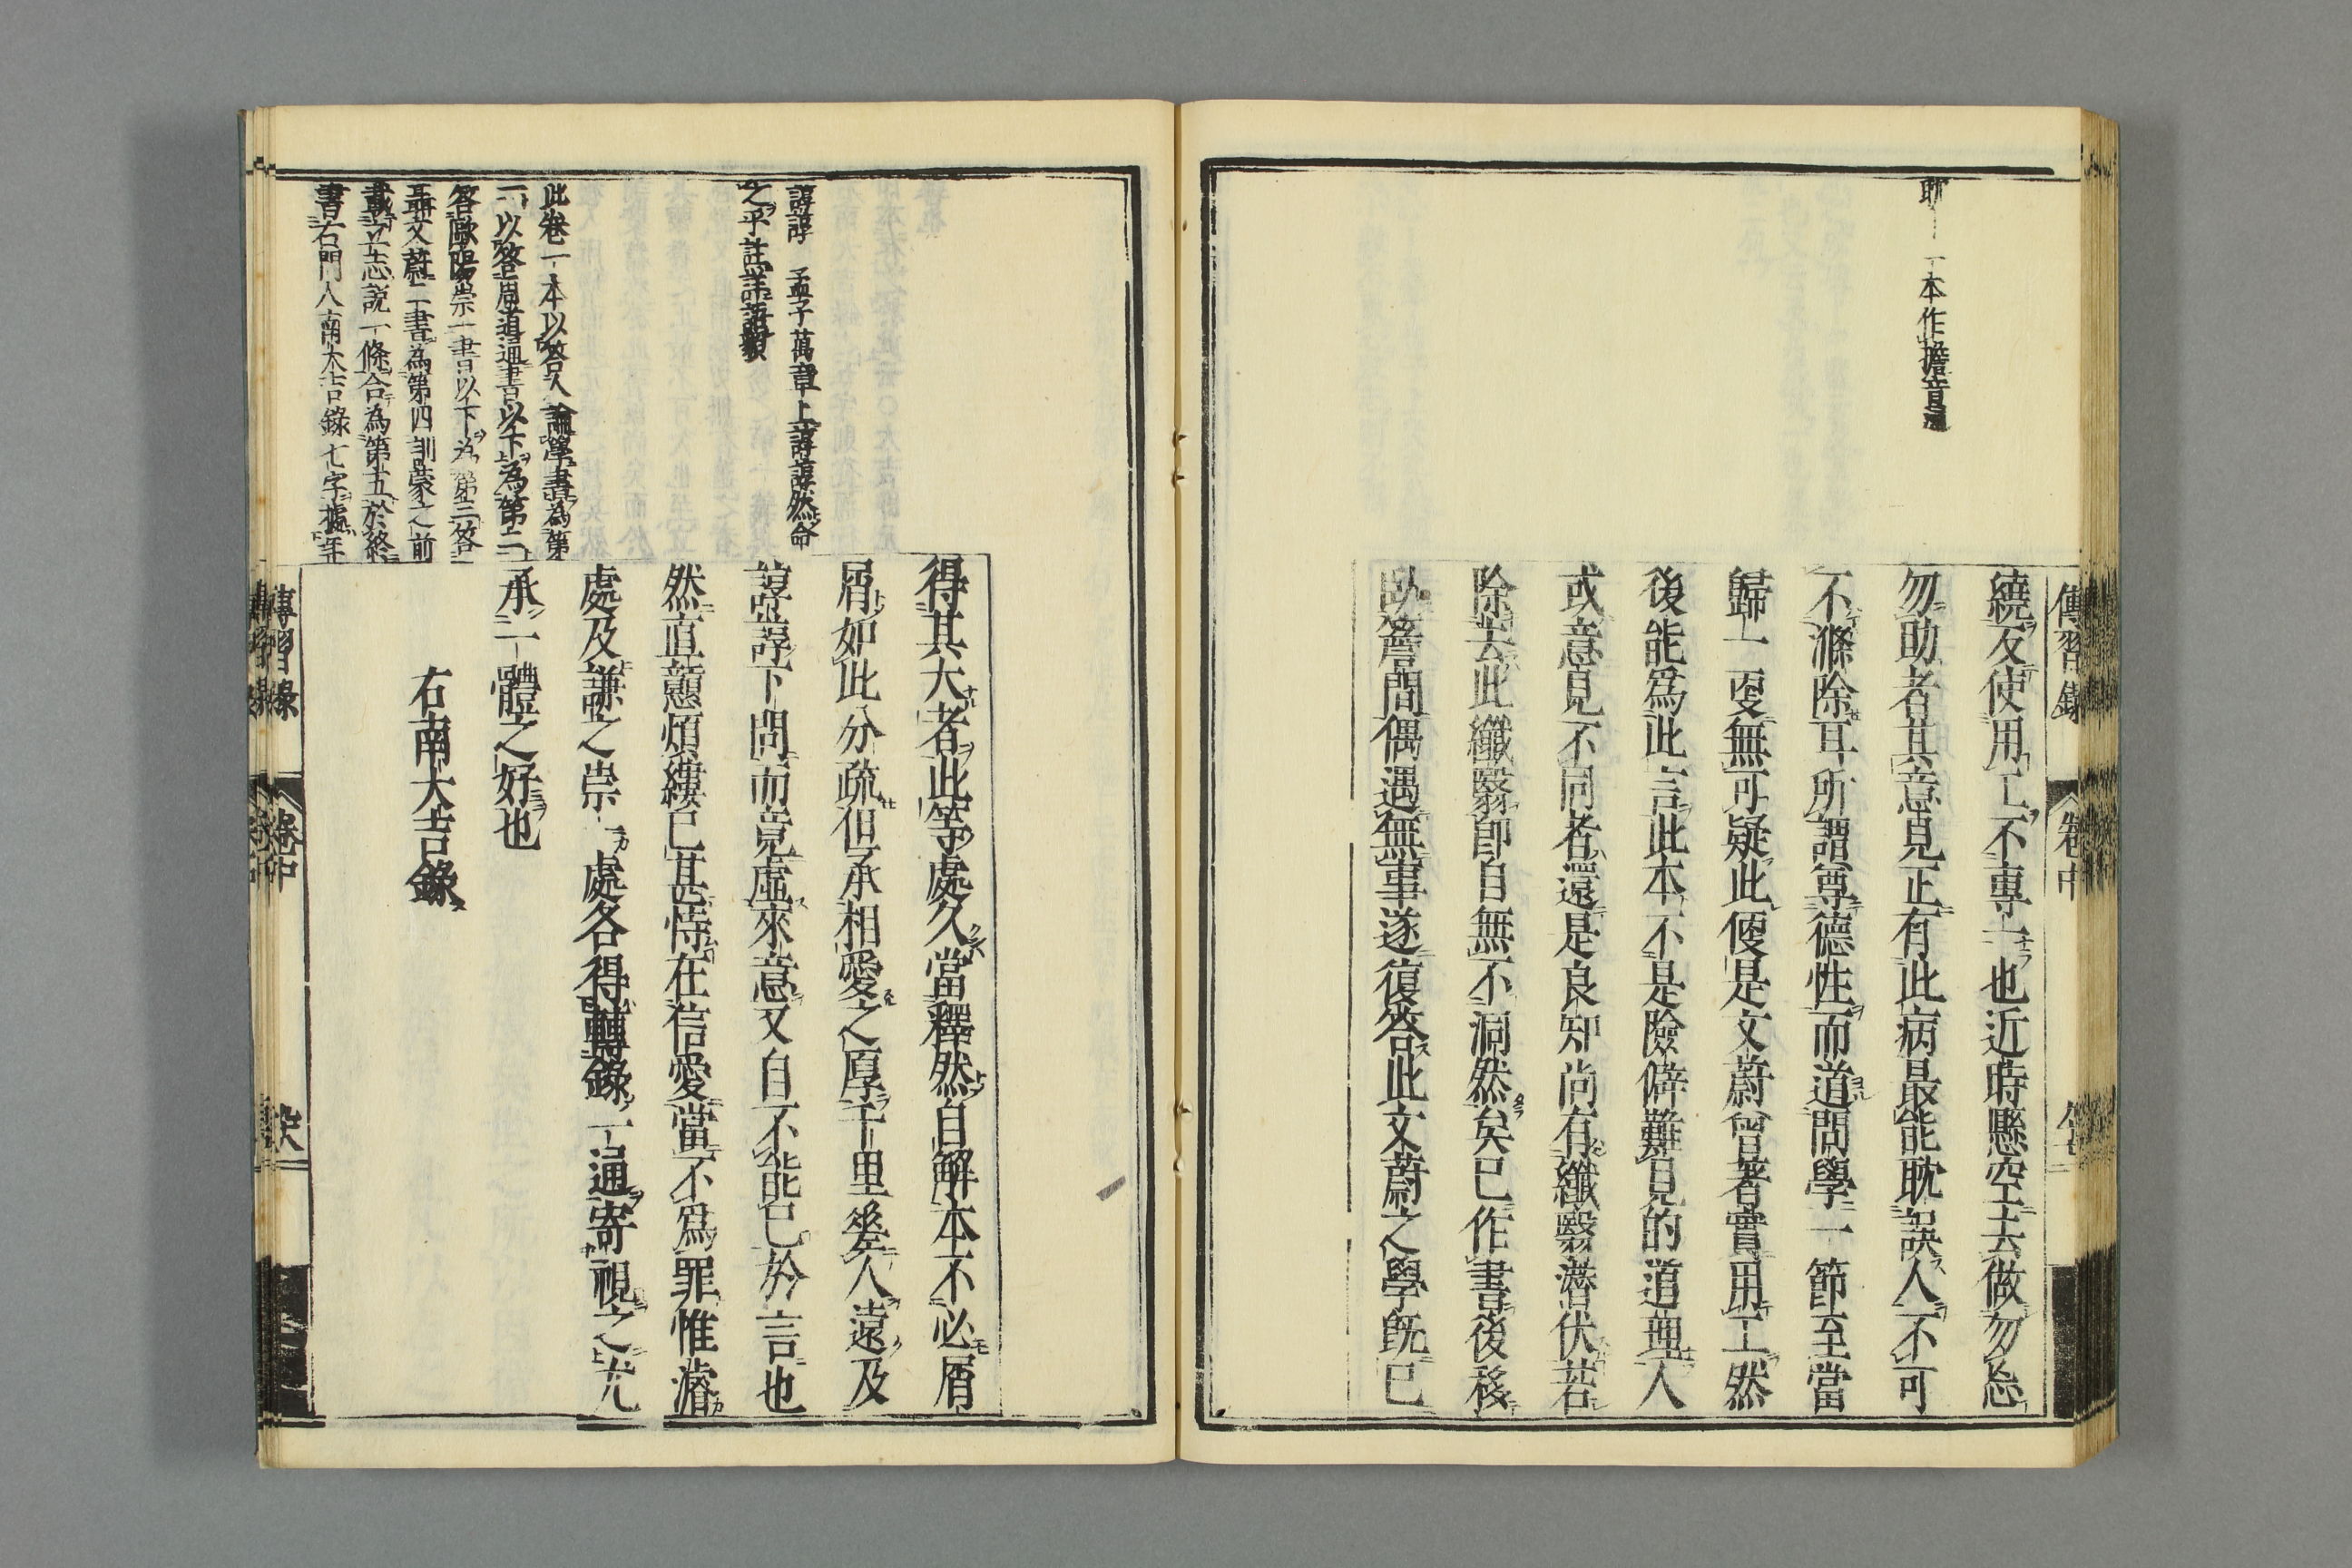 耽 一本作擔音
傳習錄 卷中
繞反使用工不專一也近時懸空去做勿忘
勿助者其意見正有此病最能耽誤人不可
不滌除耳所謂尊德性而道問學一節至當
歸一更無可疑此便是文蔚曾著實用工然
後能爲此言此本不是險僻難見的道理人
或意見不同者還是良知尚有纖翳潛伏若
除去此纖翳卽自無不洞然矣已作書後移
臥簷間偶遇無事遂復答此文蔚之學既已
諄諄 孟子萬章上諄諄然命
之乎註詳語貌
此卷一本以答人論學書為第
一以答周道通書以下為第二
答歐陽崇一書以下為第三答
聶文蔚二書為第四訓蒙之前
載立志説一條合為第五於終
書右門人南大吉錄七字據年
得其大者此等處久當釋然自解本不必屑
屑如此分疏但承相愛之厚千里差人遠及
諄諄下問而竟虛來意又自不能已於言也
然直戇煩縷已甚恃在信愛當不爲罪惟濬
處及謙之崇一處各得轉錄一通寄視之尤
承一體之好也
右南大吉錄
傳習錄 卷中